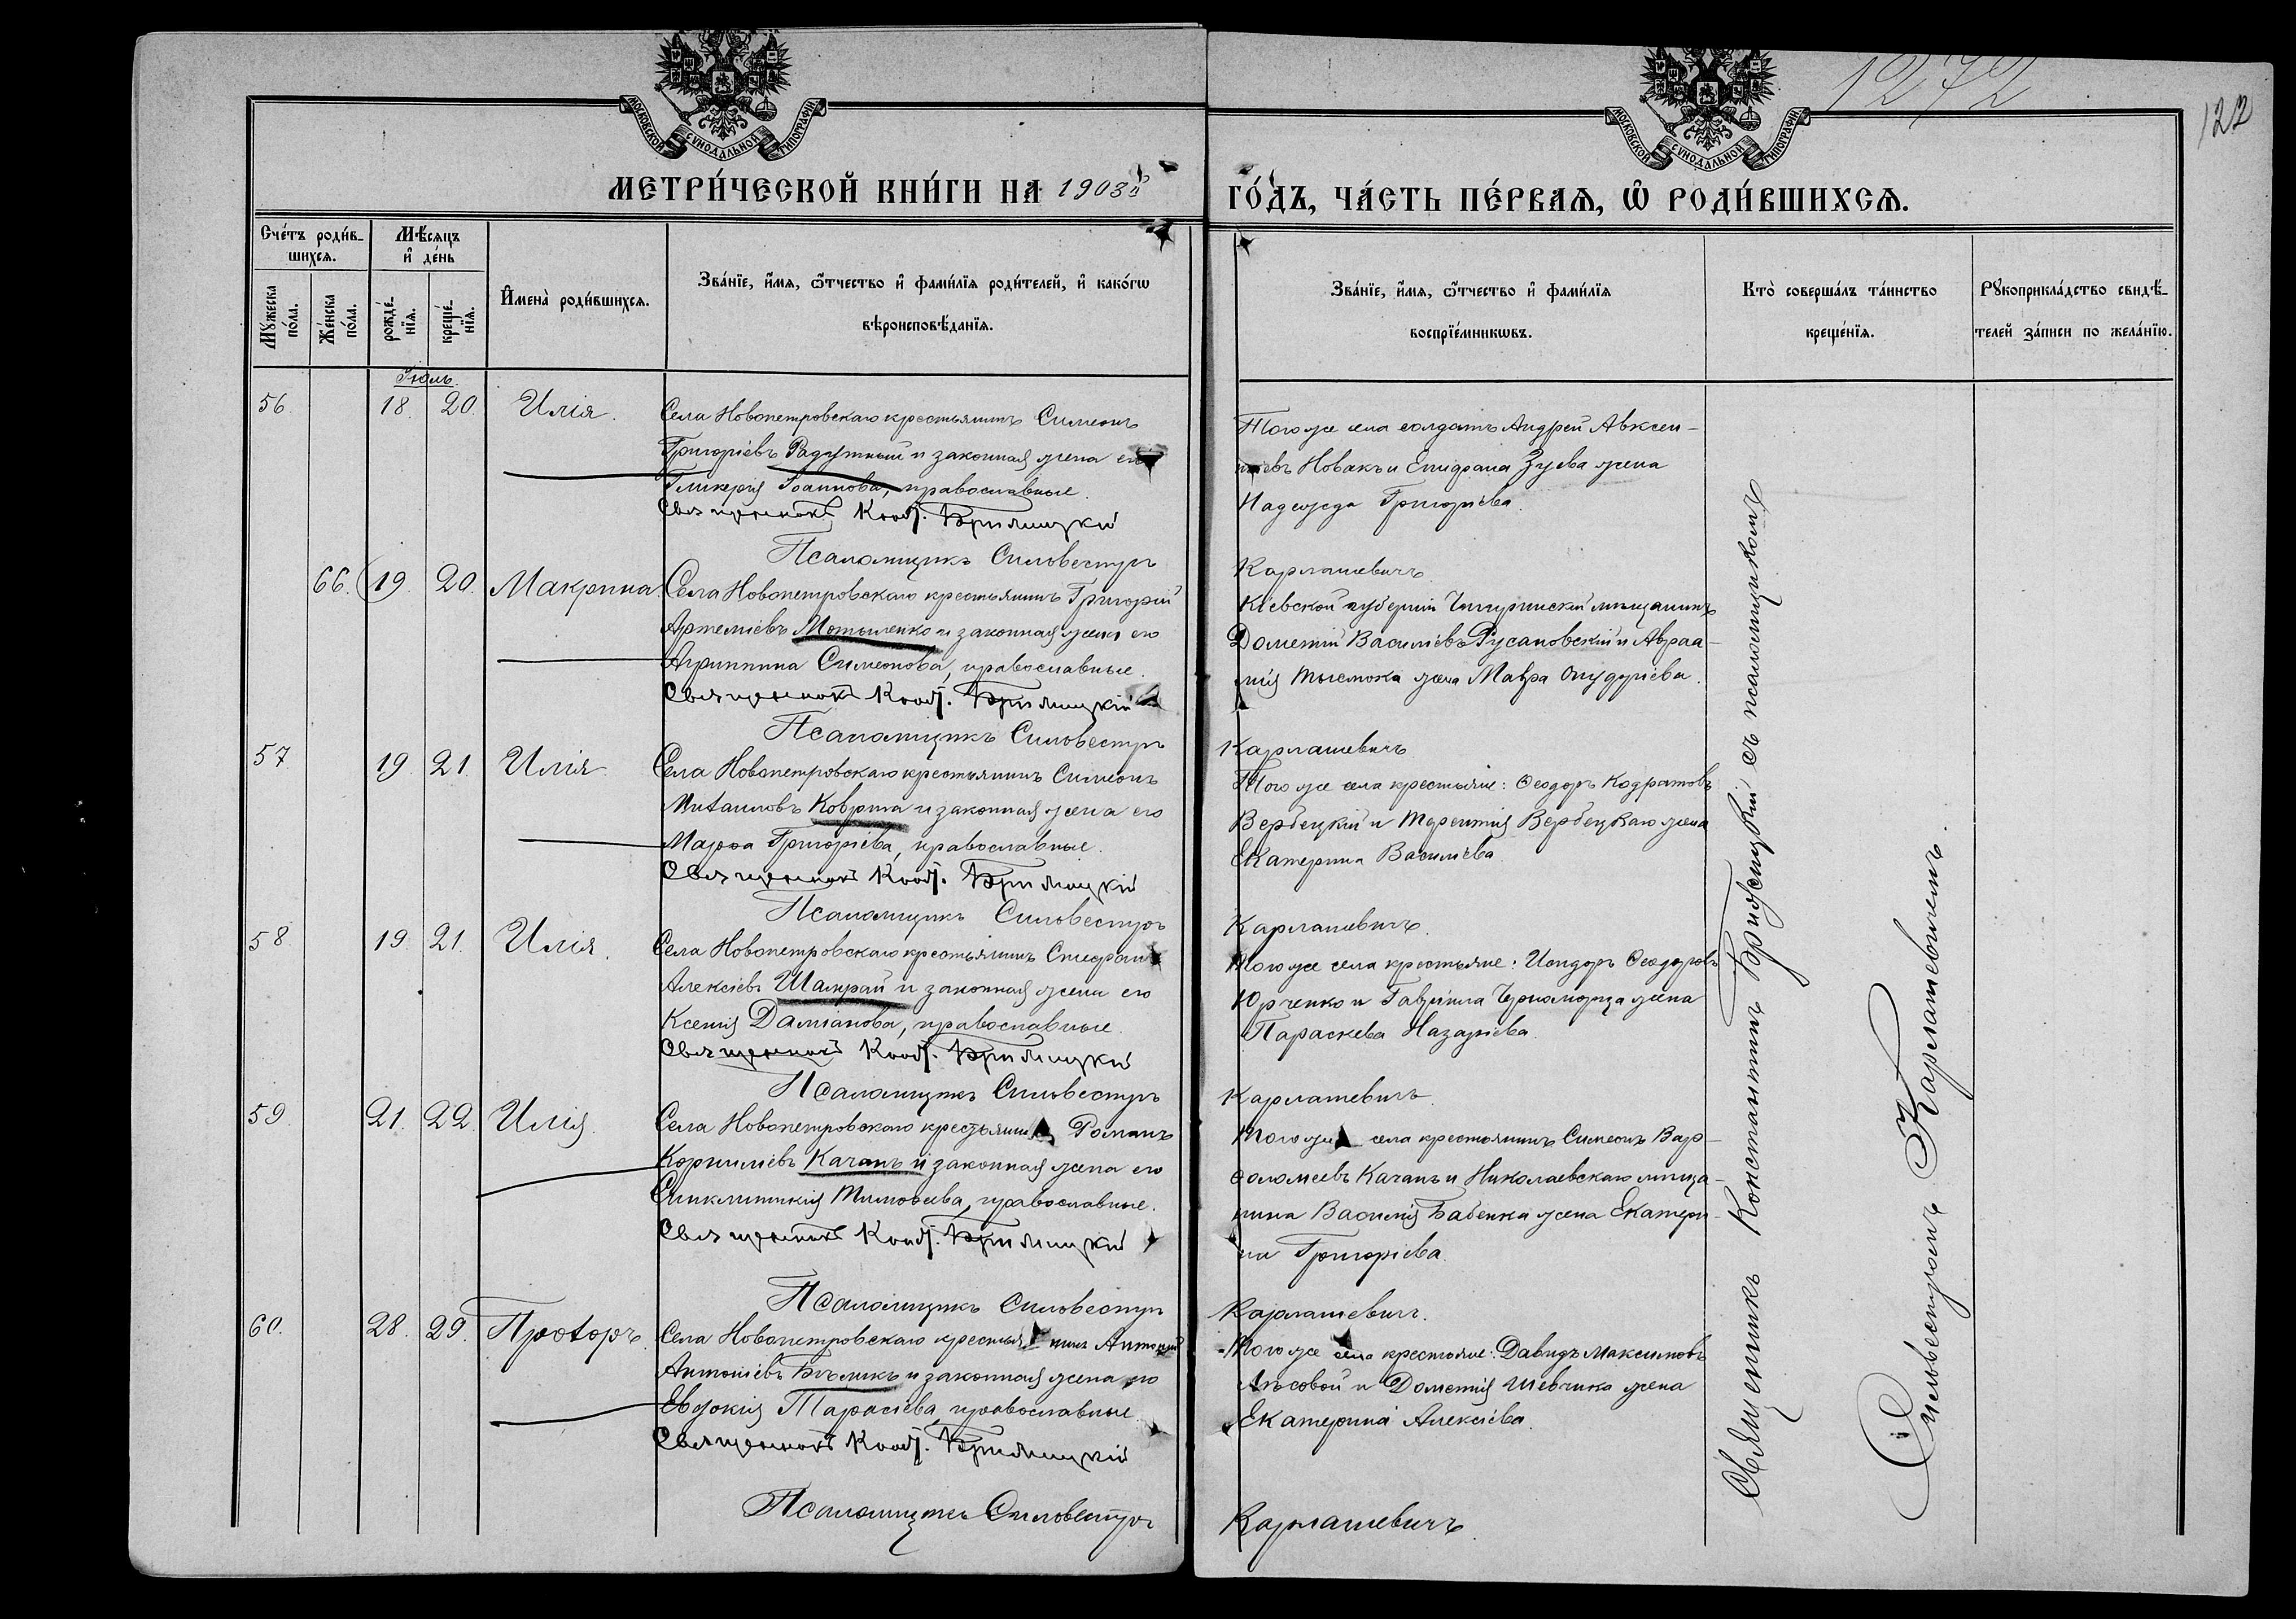 1272
122
МОСКОВСКОЙ СѴНОДАЛЬНОЙ ТИПОГРАФІИ
МОСКОВСКОЙ СѴНОДАЛЬНОЙ ТИПОГРАФІИ
МЕТРИ́ЧЕСКОЙ КНИ́ГИ НА 1903й
ГО́ДЪ, ЧА́СТЬ ПЕ́РВАѦ, Ѡ҆ РОДИ́ВШИХСѦ.
Сче́тъ роди́в-
шихсѧ.
Мѣ́сѧцъ
и҆ де́нь
Мꙋ́жеска
по́ла.
Же́нска
по́ла.
рожде́-
нїѧ.
креще́-
нїѧ.
И҆мена̀ роди́вшихсѧ.
Зва́нїе, и҆́мѧ, ѻ҆́тчество и҆ фами́лїѧ роди́телей, и҆ како́гѡ
вѣроисповѣ́данїѧ.
Зва́нїе, и҆́мѧ, ѻ҆́тчество и҆ фами́лїѧ
воспрїе́мникѡвъ.
Кто̀ соверша́лъ та́инство
креще́нїѧ.
Рꙋкоприкла́дство свидѣ́-
телей за́писи по жела́нїю.
Іюль.
56. 18. 20. Илія.
Села Новопетровскаго крестьянинъ Симеонъ
Григоріевъ Радутный и законная жена его
Гликерія Іоаннова, православные.
Священникъ Конст. Бриямицкій
Псаломщикъ Сильвестръ
Того же села солдатъ Андрей Авксен-
тіевъ Новакъ и Епифана Зуева жена
Надежда Григоріева.
Карлашевичъ.
66. 19. 20. Макрина.
Села Новопетровскаго крестьянинъ Григорій
Артеміевъ Мотыленко и законная жена его
Агриппина Симеонова, православные.
Священникъ Конст.
Псаломщикъ Сильвестръ
Кіевской губерніи Чигиринскій мѣщанинъ
Дометій Василіевъ Русановскій и Авраа-
мія жена Мавра
Карлашевичъ
57. 19. 21. Илія
Села Новопетровскаго крестьянинъ Симеонъ
Михаиловъ Коврта и законная жена его
Марѳа Григоріева, православные.
Священникъ Конст.
Псаломщикъ Сильвестръ
Того же села крестьяне: Ѳеодоръ Кодратовъ
Вербецкій и Терентія Вербецкаго жена
Екатерина Василіева.
Карлашевичъ.
58. 19. 21. Илія.
Села Новопетровскаго крестьянинъ Спиридонъ
Алексіевъ Шамрай и законная жена его
Ксенія Даміанова, православные.
Священникъ Конст.
Псаломщикъ Сильвестръ
Того же села крестьяне: Исидоръ Ѳеодоровъ
Юрченко и Гавріила Черноморца жена
Параскева Назаріева.
Карлашевичъ.
59. 21. 22. Илія.
Села Новопетровскаго крестьянинъ Романъ
Корниліевъ Качанъ и законная жена его
Синклитикія Тимоѳеева, православные.
Священникъ Конст.
Псаломщикъ Сильвестръ
Того же села крестьянинъ Симеонъ Вар-
ѳоломеевъ Качанъ и Николаевскаго мѣща-
нина Василія Бабенка жена Екатери-
на Григоріева.
Карлашевичъ.
60. 28. 29. Прохоръ.
Села Новопетровскаго крестьянинъ Антоній
Антоніевъ Бѣликъ и законная жена его
Евдокія Тарасіева, православные.
Священникъ Конст.
Псаломщикъ Сильвестръ
Того же села крестьяне: Давидъ Максимовъ
Лѣсовой и Дометія Шевчика жена
Екатерина Алексіева.
Карлашевичъ.
Священникъ Константинъ съ псаломщикомъ
Сильвестромъ Карлашевичемъ.